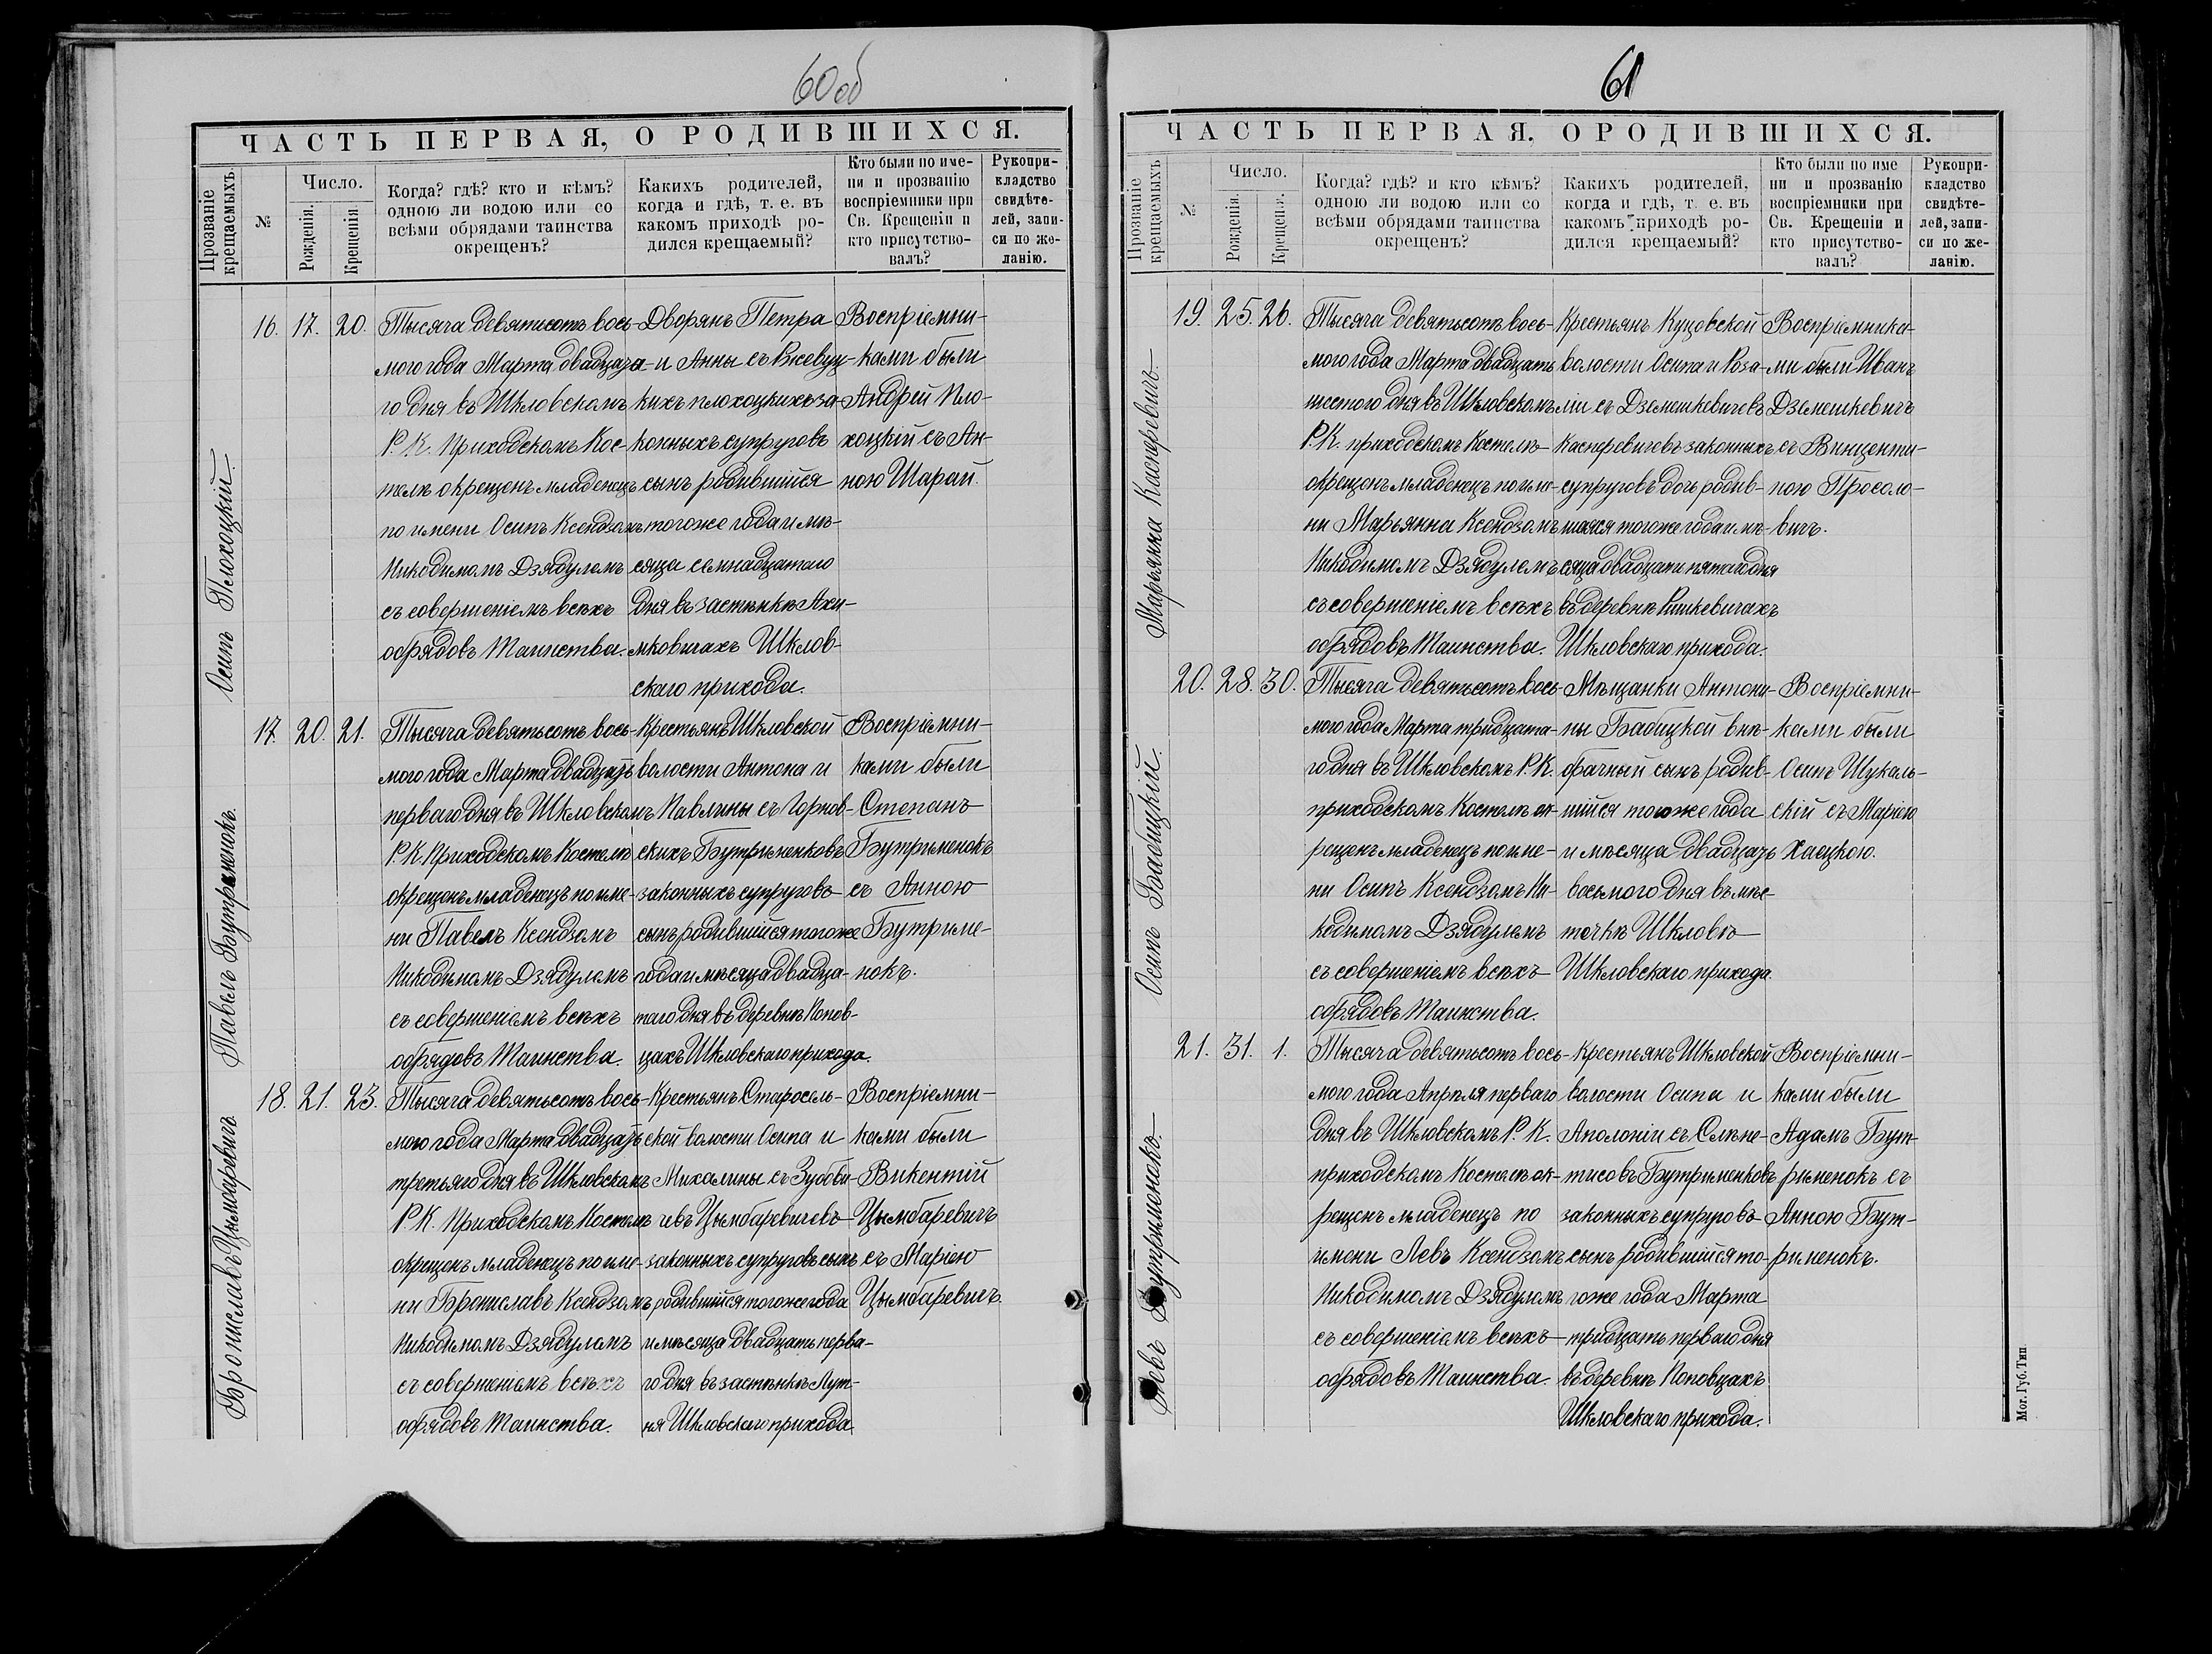 60 об
ЧАСТЬ ПЕРВАЯ, О РОДИВШИХСЯ.
Прозваніе крещаемыхъ.
№
Число.
Рожденія.
Крещенія
Когда? гдѣ? кто и кѣмъ?
одною ли водою или со
всѣми обрядами таинства
окрещенъ?
Какихъ родителей,
когда и гдѣ, т. е. въ
какомъ приходѣ ро-
дился крещаемый?
Кто были по име-
ни и прозванію
воспріемники при
Св. Крещеніи и
кто присутство-
валъ?
Рукопри-
кладство
свидѣте-
лей, запи-
си по же-
ланію.
Осипъ Плохоцкій.
16. 17. 20.
Тысяча девятисотъ вось-
мого года Марта двадцата-
го дня въ Шкловскомъ
Р. К. Приходскомъ Кос-
телѣ окрещенъ младенецъ
по имени Осипъ Ксендзомъ
Никодимомъ Дзядулемъ
съ совершеніемъ всѣхъ
обрядовъ Таинства.
Дворянъ Петра
и Анны съ Ржевуц-
кихъ Плохоцкихъ за-
конныхъ супруговъ
сынъ родившійся
тогоже года и мѣ-
сяца семнадцатаго
дня въ застѣнкѣ Аки-
мковичахъ Шклов-
скаго прихода.
Воспріемни-
ками были
Андрей Пло-
хоцкій съ Ан-
ною Шарай.
Павелъ Бутрименокъ.
17. 20. 21.
Тысяча девятьсотъ вось-
мого года Марта двадцать
перваго дня въ Шкловскомъ
Р. К. Приходскомъ Костелѣ
окрещенъ младенецъ по име-
ни Павелъ Ксендзомъ
Никодимомъ Дзядулемъ
съ совершеніемъ всѣхъ
обрядовъ Таинства.
Крестьянъ Шкловской
волости Антона и
Павлины съ Горнов-
скихъ Бутрименковъ
законныхъ супруговъ
сынъ родившійся тогоже
года и мѣсяца двадца-
таго дня въ деревнѣ Попов-
цахъ Шкловскаго прихода.
Воспріемни-
ками были
Степанъ
Бутрименокъ
съ Анною
Бутриме-
нокъ.
Брониславъ Цымбаревичъ
18. 21. 23.
Тысяча девятьсотъ вось-
мого года Марта двадцать
третьяго дня въ Шкловскомъ
Р. К. Приходскомъ Костелѣ
окрещенъ младенецъ по име-
ни Брониславъ Ксендзомъ
Никодимомъ Дзядулемъ
съ совершеніемъ всѣхъ
обрядовъ Таинства.
Крестьянъ Старосель-
ской волости Осипа и
Михалины съ Зубови-
чевъ Цымбаревичевъ
законныхъ супруговъ сынъ
родившійся тогоже года
и мѣсяца двадцать перва-
го дня въ застѣнкѣ Лут-
ня Шкловскаго прихода.
Воспріемни-
ками были
Викентій
Цымбаревичъ
съ Маріею
Цымбаревичъ.
61
ЧАСТЬ ПЕРВАЯ, О РОДИВШИХСЯ.
Прозваніе крещаемыхъ
№
Число.
Рожденія.
Крещенія.
Когда? гдѣ? и кто кѣмъ?
одною ли водою или со
всѣми обрядами таинства
окрещенъ?
Какихъ родителей,
когда и гдѣ, т. е. въ
какомъ приходѣ ро-
дился крещаемый?
Кто были по име
ни и прозванію
воспріемники при
Св. Крещеніи и
кто присутство-
валъ?
Рукопри-
кладство
свидѣте-
лей, запи-
си по же-
ланію.
Марьянна Касперевичъ.
19. 25. 26.
Тысяча девятьсотъ вось-
мого года Марта двадцать
шестого дня въ Шкловскомъ
Р. К. приходскомъ Костелѣ
окрещенъ младенецъ по име-
ни Марьянна Ксендзомъ
Никодимомъ Дзядулемъ
съ совершеніемъ всѣхъ
обрядовъ Таинства.
Крестьянъ Куцовской
волости Осипа и Роза-
ліи съ Дземешкевичевъ
Касперевичевъ законныхъ
супруговъ дочь родив-
шаяся тогоже года и мѣ-
сяца двадцать пятаго дня
въ деревнѣ Ришкевичахъ
Шкловскаго прихода.
Воспріемника-
ми были Иванъ
Дземешкевичъ
съ Винценти-
ною Просоло-
вичъ.
Осипъ Бабицкій.
20. 28. 30.
Тысяча девятьсотъ вось-
мого года Марта тридцата-
го дня въ Шкловскомъ Р. К.
приходскомъ Костелѣ ок-
рещенъ младенецъ по име-
ни Осипъ Ксендзомъ Ни-
кодимомъ Дзядулемъ
съ совершеніемъ всѣхъ
обрядовъ Таинства.
Мѣщанки Антони-
ны Бабицкой внѣ-
брачный сынъ родив-
шійся тогоже года
и мѣсяца двадцать
восьмого дня въ мѣс-
течкѣ Шкловѣ
Шкловскаго прихода.
Воспріемни-
ками были
Осипъ Шукаль-
скій съ Маріею
Хаецкою.
Левъ Бутрименокъ
21. 31. 1.
Тысяча девятьсотъ вось-
мого года Апрѣля перваго
дня въ Шкловскомъ Р. К.
приходскомъ Костелѣ ок-
рещенъ младенецъ по
имени Левъ Ксендзомъ
Никодимомъ Дзядулемъ
съ совершеніемъ всѣхъ
обрядовъ Таинства.
Крестьянъ Шкловской
волости Осипа и
Аполоніи съ Слѣпе-
тисовъ Бутрименковъ
законныхъ супруговъ
сынъ родившійся то-
гоже года Марта
тридцать перваго дня
въ деревнѣ Поповцахъ
Шкловскаго прихода.
Воспріемни-
ками были
Адамъ Бут-
рименокъ съ
Анною Бут-
рименокъ.
Мог. Губ. Тип.